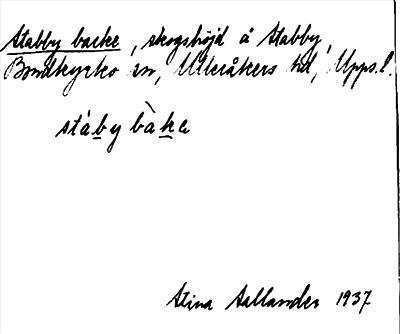 Stabby backe, skogshöjd å Stabby,
Bondkyrko sn, Ulleråkers hd, Upps. l.
stáby bàkɐ
Stina Aallander 1937